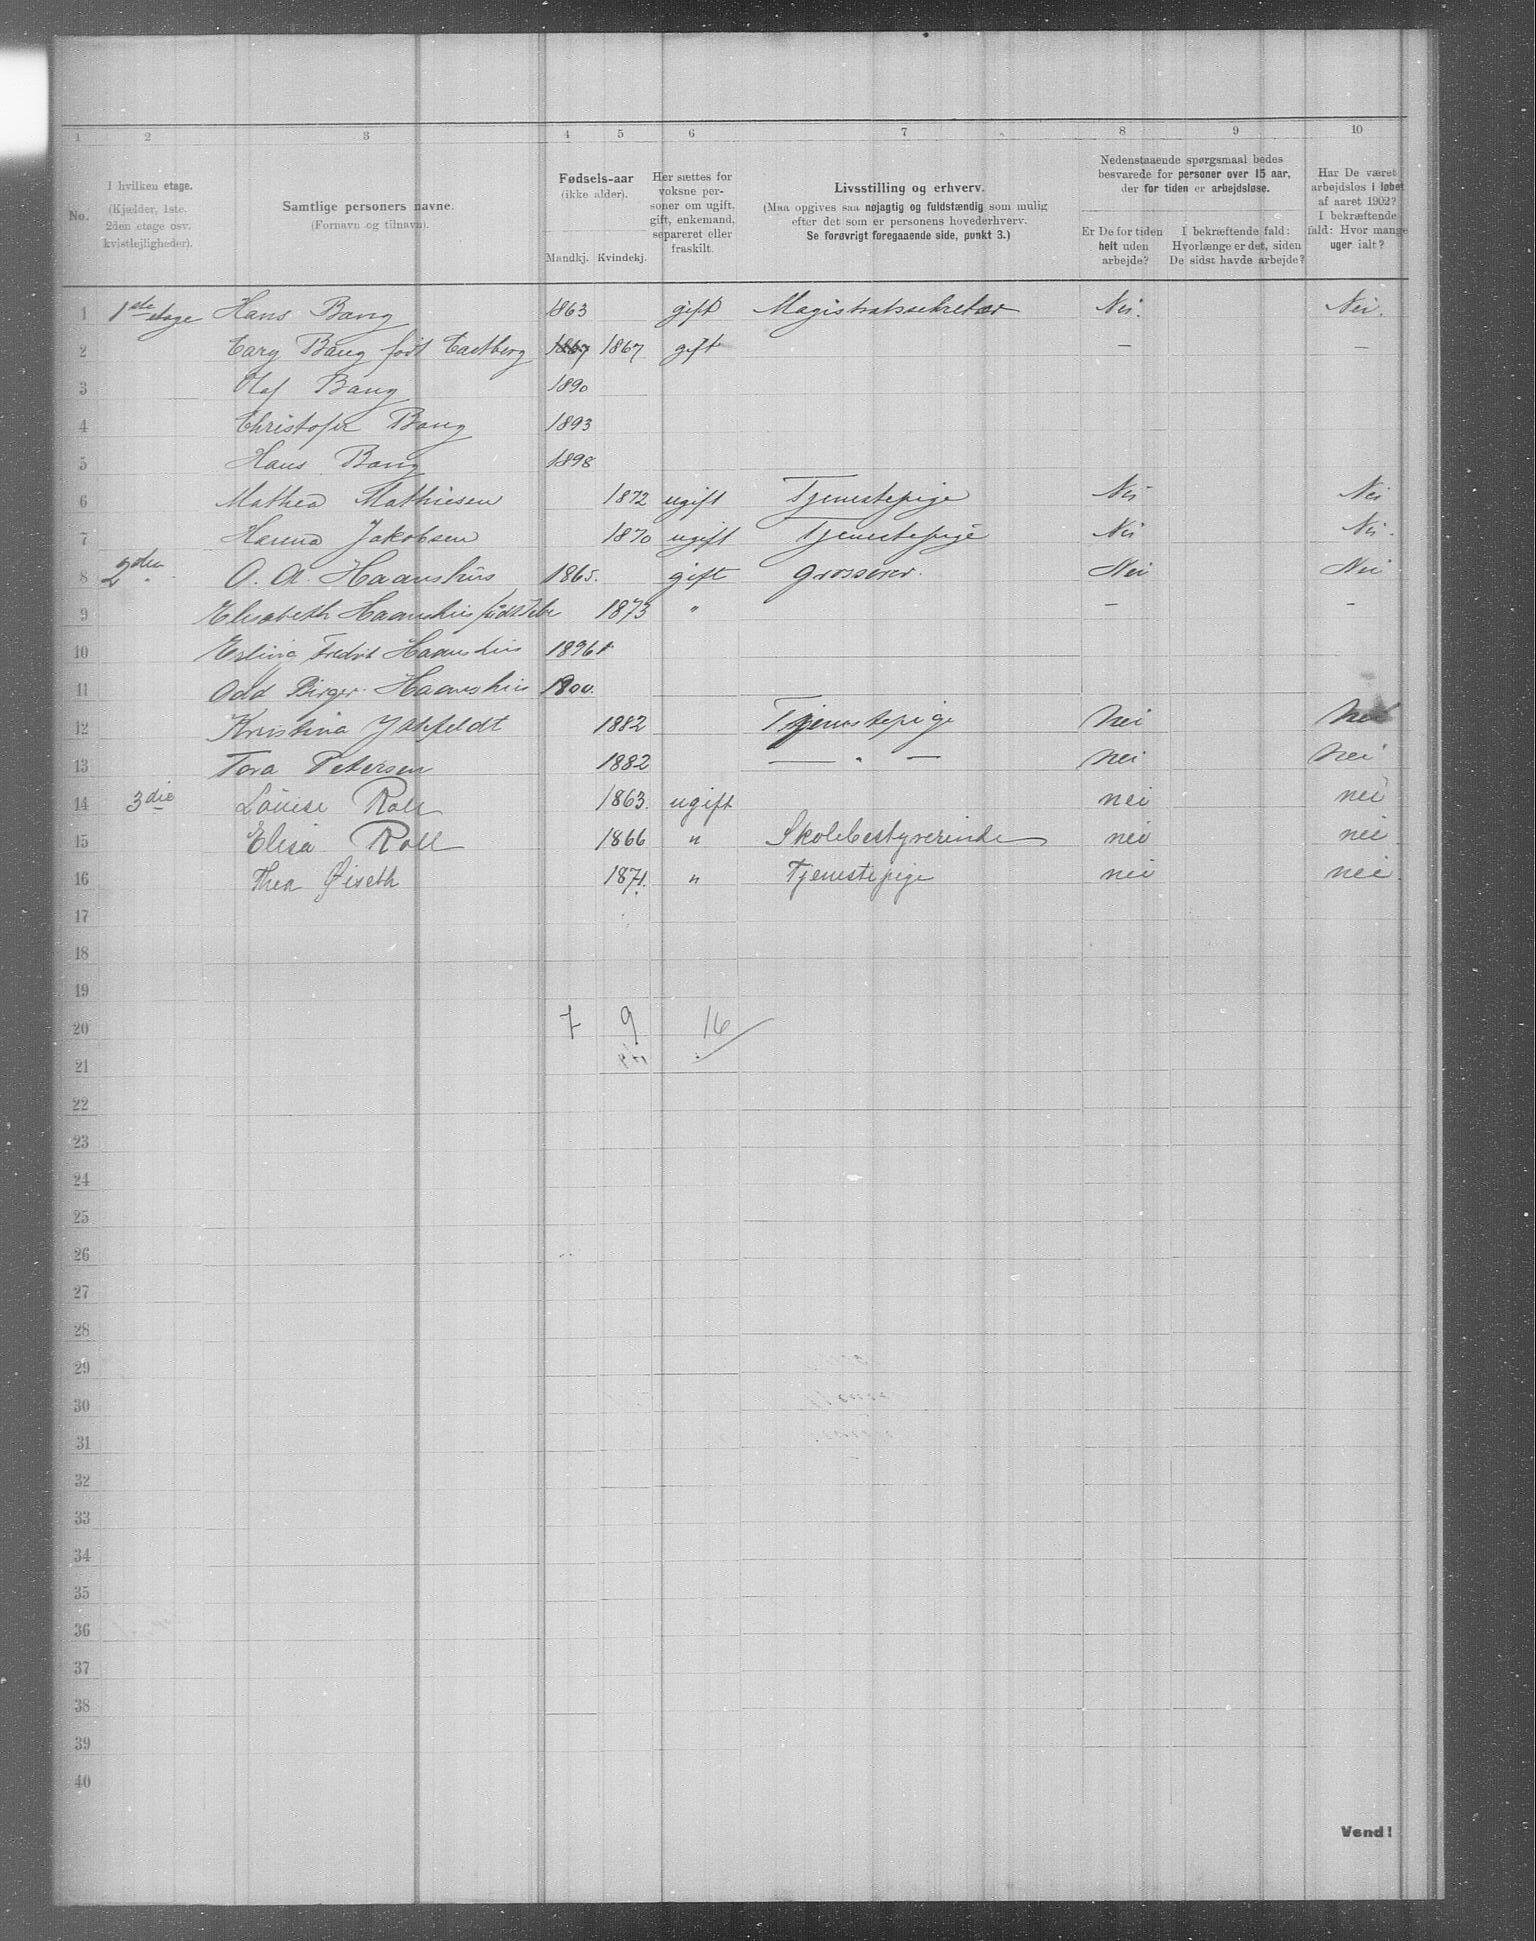 1 2 3 4 5 6 7 8 9 10
No.
I hvilken etage.
(Kjælder, 1ste.
2den etage osv.
kvistlejligheder).
Samtlige personers navne.
(Fornavn og tilnavn).
Fødsels-aar
(ikke alder).
Mandkj. Kvindekj.
Her sættes for
voksne per-
soner om ugift,
gift, enkemand,
separeret eller
fraskilt.
Livsstilling og erhverv.
(Maa opgives saa nøjagtig og fuldstændig som mulig
efter det som er personens hovederhverv.
Se forøvrigt foregaaende side, punkt 3.)
Nedenstaaende spørgsmaal bedes
besvarede for personer over 15 aar,
der for tiden er arbejdsløse.
Er De for tiden
helt uden
arbejde?
I bekræftende fald:
Hvorlænge er det, siden
De sidst havde arbejde?
Har De været
arbejdsløs i løbet
af aaret 1902?
I bekræftende
fald: Hvor mange
uger ialt?
1 1ste etage Hans Bang 1863 gift Magistratssekretær Nei. Nei.
2 Bang født Castberg 1867 1867 gift — —
3 Olaf Bang 1890
4 Christofer Bang 1893
5 Hans Bang 1898
6 Mathea Mathiesen 1872 ugift Tjenestepige Nei Nei
7 Hanna Jakobsen 1870 ugift Tjenestepige Nei Nei.
8 2den " O. A. Haanshus 1865. gift Grosserer. Nei Nei
9 Elisabeth Haanshus født 1873 " — —
10 Erling Fredrik Haanshus 1896
11 Odd Birger Haanshus 1900.
12 Kristina 1882 Tjenestepige Nei Nei
13 Tora Petersen 1882 — " — Nei Nei
14 3die Louise Roll 1863. ugift nei nei
15 Elisa Roll 1866 " Skolebestyrerinde nei nei
16 Thea Øiseth 1871. " Tjenestepige nei nei
17
18
19
20 7 9 16
21
22
23
24
25
26
27
28
29
30
31
32
33
34
35
36
37
38
39
40
Vend!